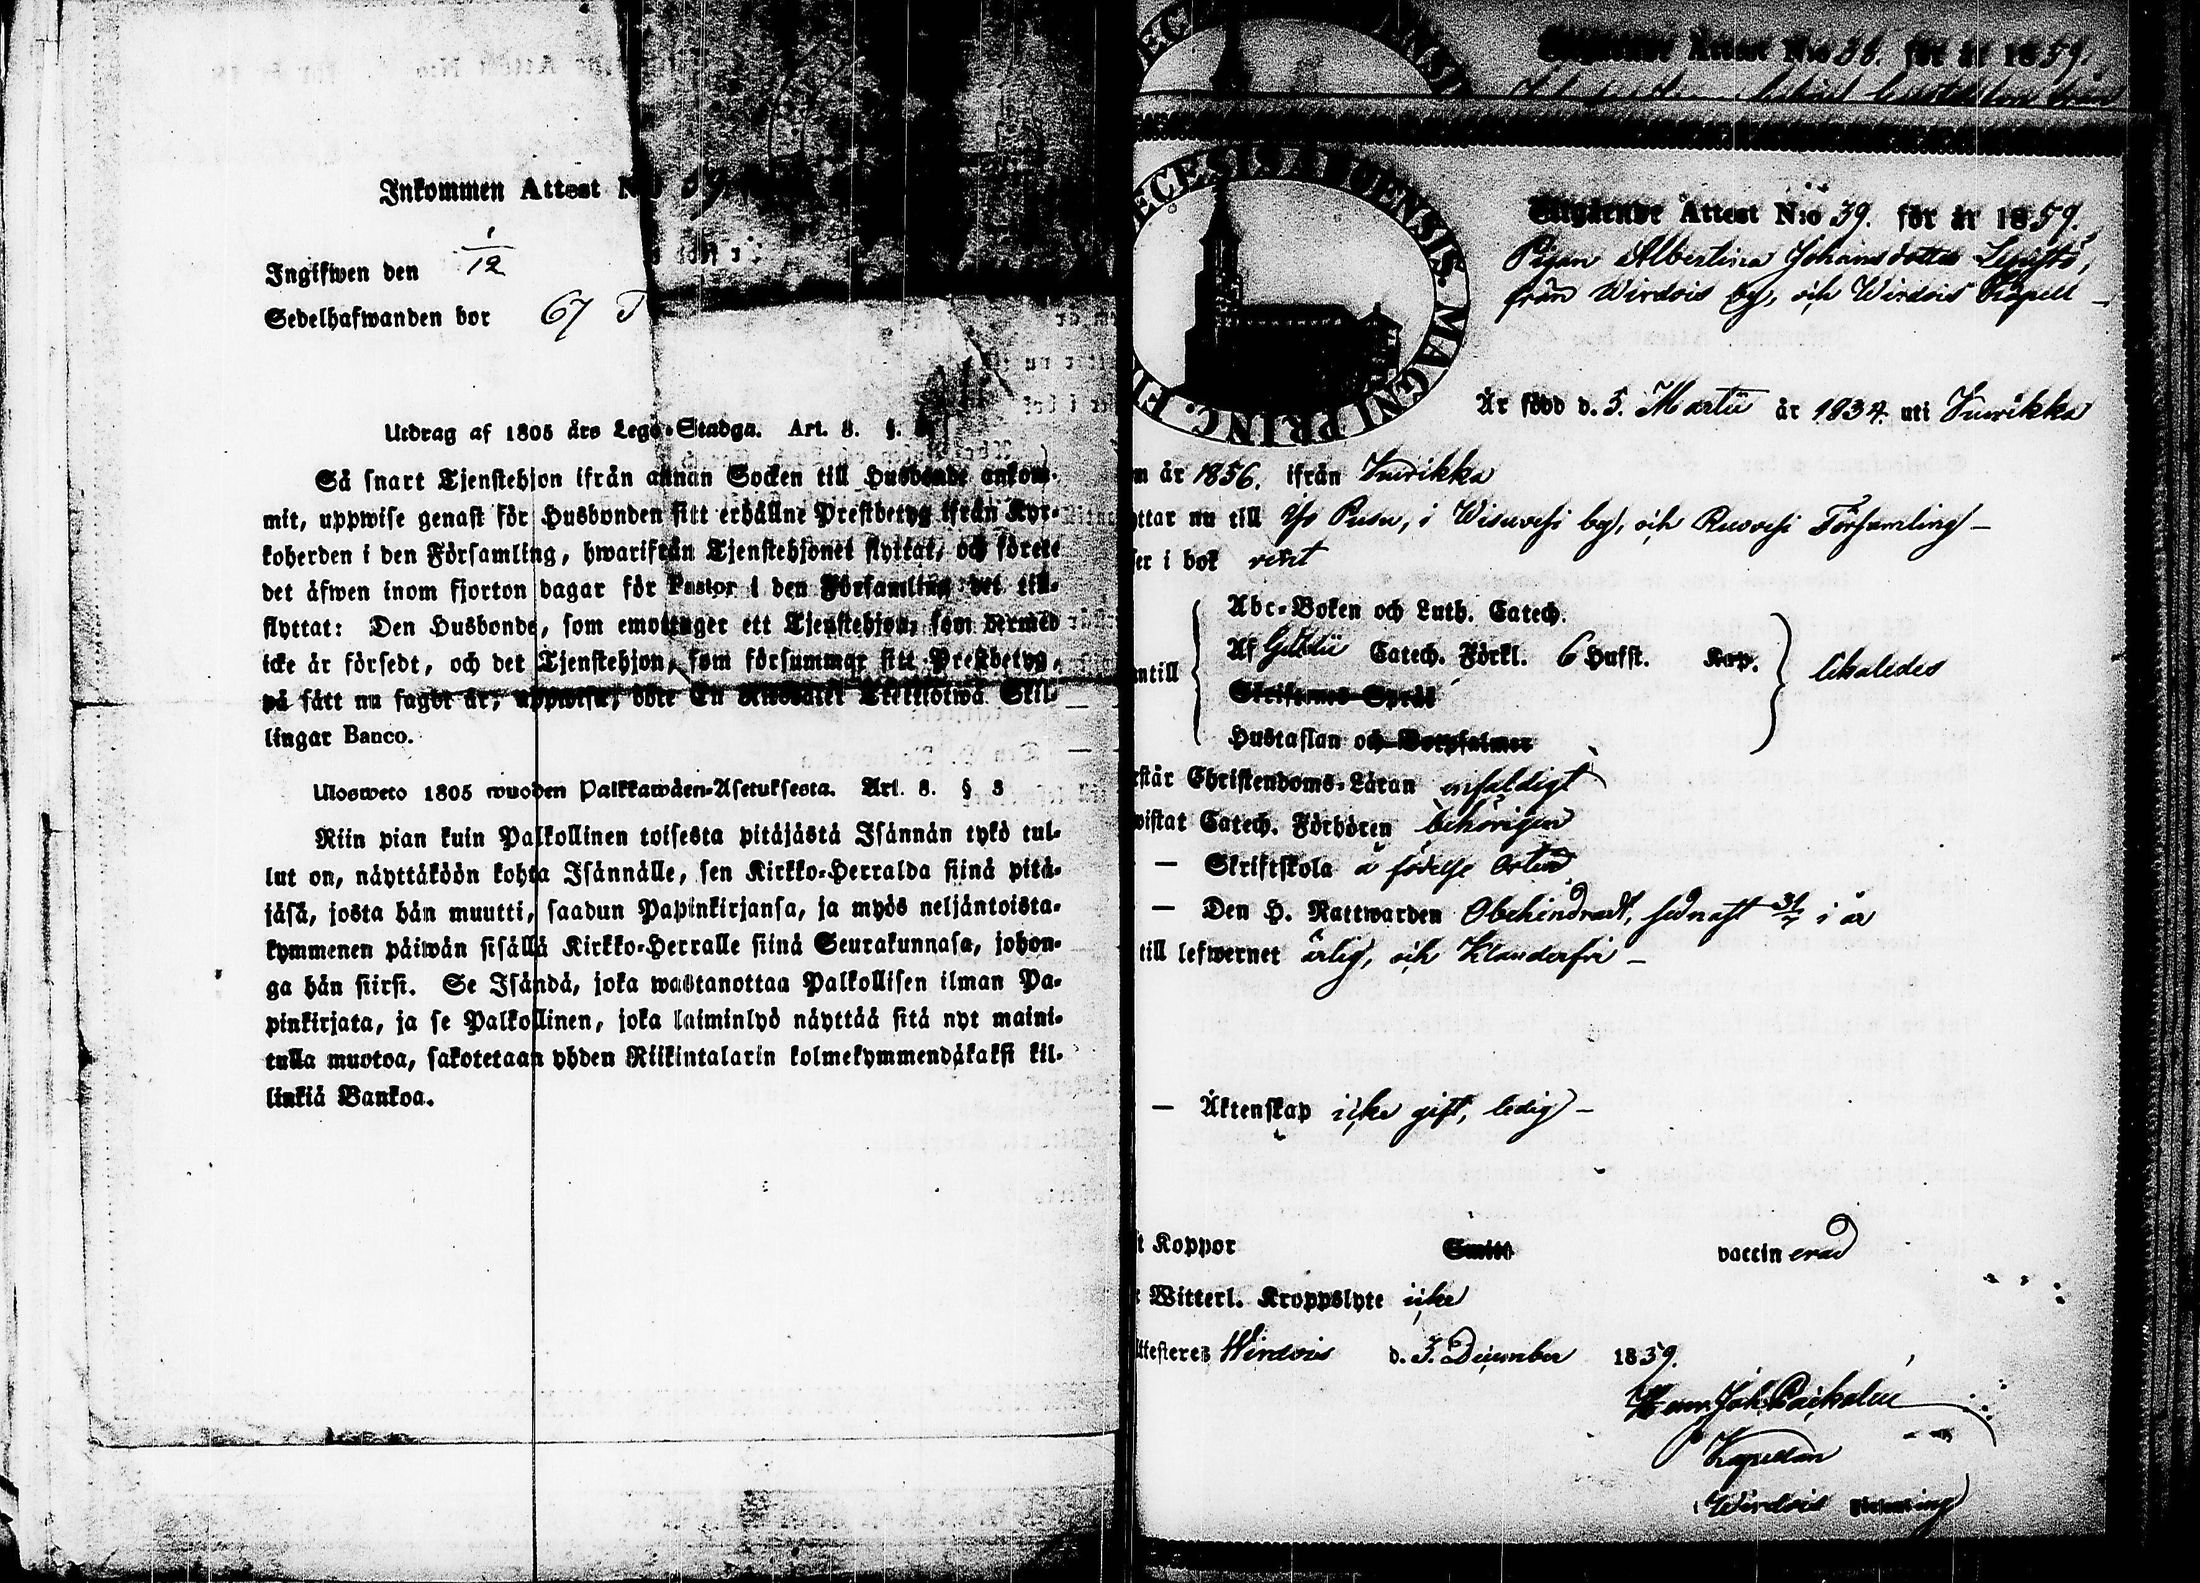 Inkommen Attest N:o
Ingifwen den 1/12
Sedelhafwanden bor 67
Utdrag af 1805 års Lego-Stadga. Art. 8. §.
Så snart Tjenstehjon ifrån annan Socken till Husbonde ankom-
mit, uppwise genast för Husbonden sitt erhållne Prestbetyg ifrån Kyr-
koherden i den Församling, hwarifrån Tjenstehjonet flyttat, och förete
det äfwen inom fjorton dagar för Pastor i den Församling det till-
flyttat: Den Husbonde, som emottager ett Tjenstehjon, som dermed
icke är försedt, och det Tjenstehjon, som försummar sitt Prestbetyg,
på sätt nu sagdt är, uppwisa, böte En Riksdaler Trettiotwå Skil-
lingar Banco.
Ulosweto 1805 wuoden Palkkawäen-Asetuksesta. Art. 8. § 8
Niin pian kuin Palkollinen toisesta pitäjästä Isännän tykö tul-
lut on, näyttäköön kohta Isännälle, sen Kirkko-Herralda siinä pitä-
jäsä, josta hän muutti, saadun Papinkirjansa, ja myös neljäntoista-
kymmenen päiwän sisällä Kirkko-Herralle siinä Seurakunnasa, johon-
ga hän siirsi. Se Isändä, joka wastanottaa Palkollisen ilman Pa-
pinkirjata, ja se Palkollinen, joka laiminlyö näyttää sitä nyt maini-
tulla muotoa, sakotetaan yhden Riikintalarin kolmekymmendäkaksi kil-
linkiä Bankoa.
Attest N:o 38. för år 1859.
ECESIS ABOENSIS. MAGNI PRINC. FI
Utgående Attest N:o 39. för år 1859.
Pigan Albertina Johansdotter
från Wirdois by, och Wirdois Kapell
Är född d. 5. Martii år 1834. uti
m år 1856. ifrån
ttar nu till Pusu, i Wisuvesi by, och Ruovesi Församling
er i bok rent
Abc-Boken och Luth. Catech.
ntill Af Catech. Förkl. 6 Hufst. Kap. likaledes
Skriftenes Språk
Hustaflan och Botpsalmer
står Christendoms-Läran enfaldigt
wistat Catech. Förhören behörigen
— Skriftskola å födelse orten
— Den H. Nattwarden Obehindradt, sednast 31/7 i år
till lefwernet ärlig, och Klanderfri —
— Äktenskap icke gift, ledig —
t Koppor Smitt vaccinerad
Witterl. Kroppslyte icke
ttesteres Wirdois d. 3. December 1859.
Kapellan
Wirdois